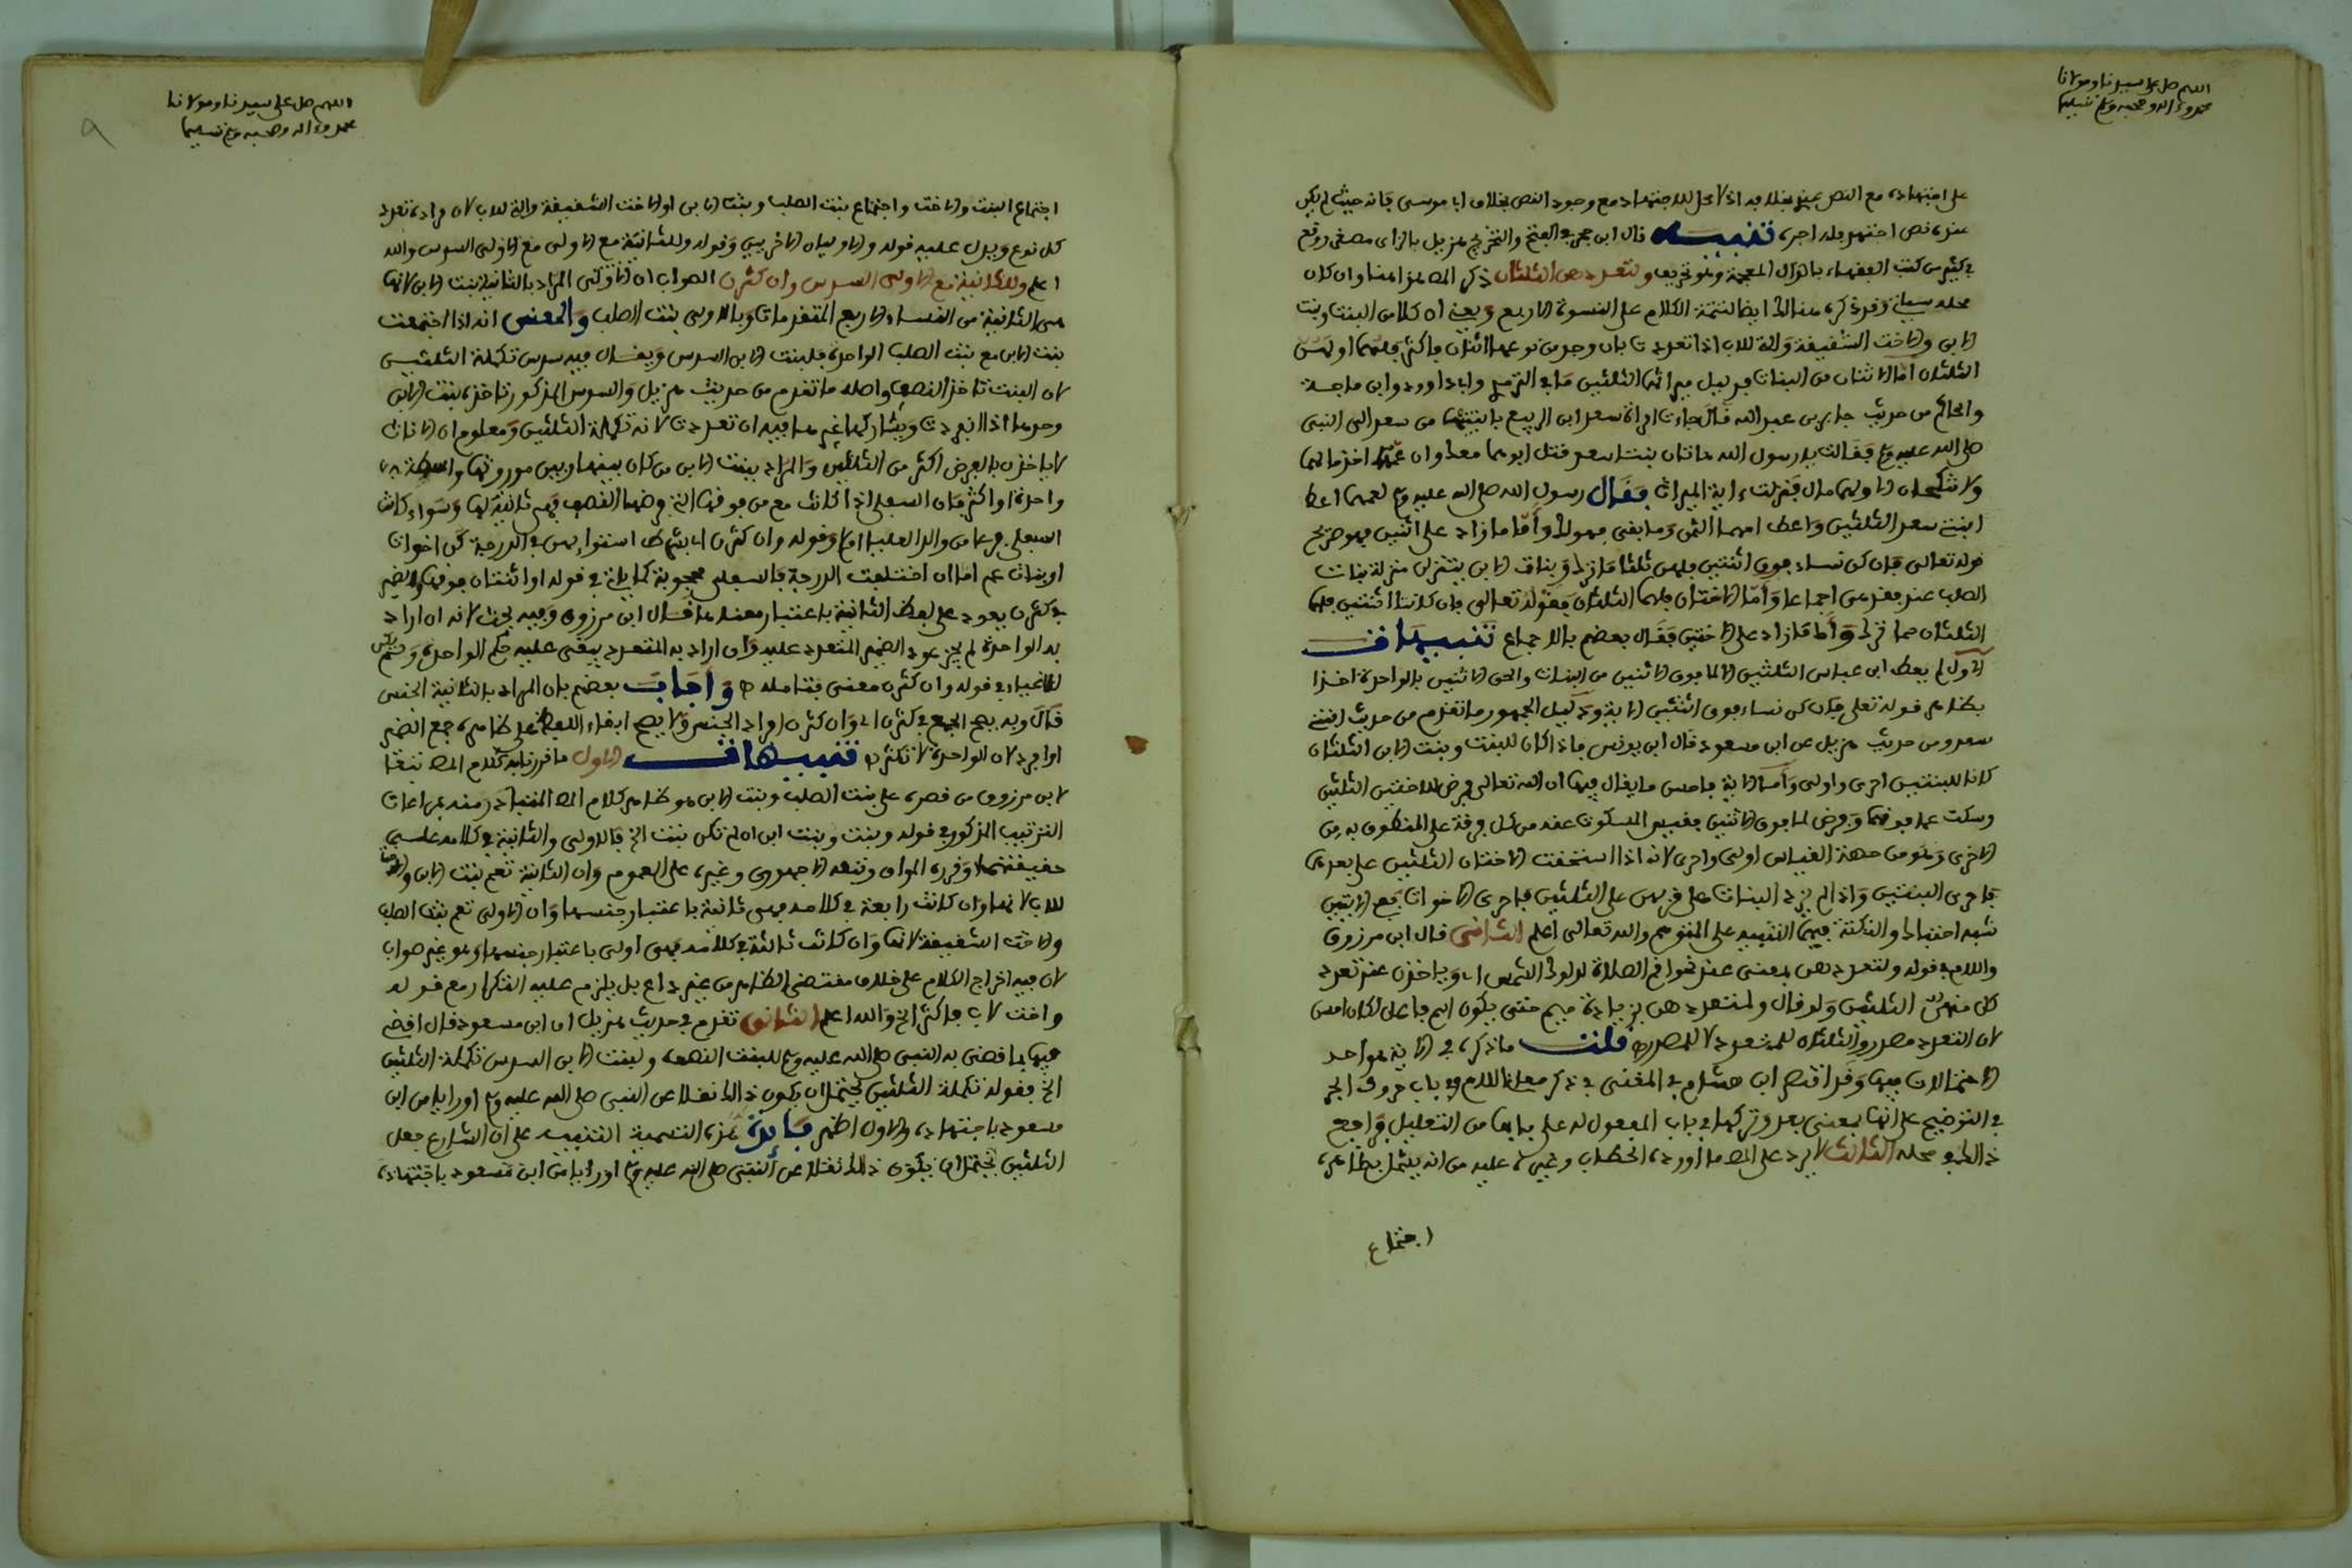 اللهم صل على سيدنا ومولانا
محمد وءاله وصحبه وسلم تسليما
على اجتهاده مع النص بخلافه اذ لا محل للاجتهاد مع وجود النص بخلاف ابا موسى فانه حيث لم يكن
عنده نص اجتهد فله اجره تنبيه قال ابن حجر في الفتح والتخريج هزيل بالزاي مصغر ووقع
في كثير من كتب الفقهاء بالذال المعجمة وهو تحريف ولتعددهن الثلثان ذكر المص هذا هنا وان كان
محله سياتي وقد ذكره هنالك ايضا لتتمة الكلام على النسوة الاربع ويعني ان كلا من البنت وبنت
الابن والاخت الشقيقة والتي للاب اذا تعددت بان وجد من نوعها اثنان فاكثر فلهما او لهن
الثلثان اما الاثنتان من البنات فدليل ميراثهما الثلثين ما في الترمذي وابا داوود وابن ماجة
والحاكم من حديث جابر بن عبد الله قال جاءت امراة سعد ابن الربيع بابنتيها من سعد الى النبي
صلى الله عليه وسلم فقالت يا رسول الله هاتان بنتا سعد قتل ابوهما معك وان عمهما اخذ مالهما
ولا تنكحان الا ولهما مال فنزلت ءاية الميراث فقال رسول الله صلى الله عليه وسلم لعمهما اعط
ابنتي سعد الثلثين واعط امهما الثمن وما بقي فهو لك وأما ما زاد على اثنتين فهو صريح
قوله تعالى فان كن نساء فوق اثنتين فلهن ثلثا ما ترك وبنات الابن يتنزلن منزلة بنات
الصلب عند فقدهن اجماعا وأما الاختان فلهما الثلثان فقوله تعالى فان كانتا اثنتين فلهما
الثلثان مما ترك وأما ما زاد على الاختين فقال بعضهم بالاجماع تنبيهات
الاول لم يعط ابن عباس الثلثين الا لما فوق الاثنتين من البنات والحق الاثنتين بالواحدة اخذا
بظاهر قوله تعالى فان كن نساء فوق اثنتين الاية ودليل الجمهور ما تقدم من حديث ابنتي
سعد ومن حديث هزيل عن ابن مسعود قال ابن يونس فاذا كان للبنت وبنت الابن الثلثان
كانا للبنتين احرى واولى وأما الاية فاحسن ما يقال فيها ان الله تعالى فرض للاختين الثلثين
وسكت عما فوقهما وفرض لما فوق الاثنتين فقيس المسكوت عنه من كل فرقة على المنطوق به من
الاخرى وهو من جهة القياس اولى واحرى لانه اذا استحقت الاختان الثلثين على بعدهن
فاحرى البنتين واذا لم يزد البنات على قربهن على الثلثين فاحرى الاخوات ففي الايتين
شبه احتباك والنكتة فيهما التنبيه على المتوهم والله تعالى اعلم الثاني قال ابن مرزوق
واللام في قوله ولتعددهن بمعنى عند نحو اقم الصلاة لدلوك الشمس اي وياخذن عند تعدد
كل منهن الثلثين ولو قال ولمتعددهن بزيادة ميم حتى يكون اسم فاعل لكان احسن
لان التعدد مصدر والثلثان للمتعدد لا للمصدر قلت ما ذكره في الاية هو احد
الاحتمالات فيها وقد اقتصر ابن هشام في المغني في ذكر معاني اللام في باب حروف الجر
في التوضيح على انها بمعنى بعد وتركها في باب المفعول له على بابها من التعليل فراجع
ذلك في محله الثالث لا يرد على المص ما اورده الحطاب وغيره عليه من انه يشمل بظاهره
اجتماع
اللهم صل على سيدنا ومولانا
محمد وءاله وصحبه وسلم تسليما
٩
اجتماع البنت والاخت واجتماع بنت الصلب وبنت الابن او الاخت الشقيقة والتي للاب لان مراده تعدد
كل نوع ويدل عليه قوله والاوليان الاخريين وقوله وللثانية مع الاولى مع الاولى السدس والله
اعلم وللثانية مع الاولى السدس وان كثرن الصواب ان الاولى المراد بالثانية بنت الابن لانها
هي الثانية من النساء الاربع المتقدمات وبالاولى بنت الصلب والمعنى انه اذا اجتمعت
بنت الابن مع بنت الصلب الواحدة فلبنت الابن السدس ويقال فيه سدس تكملة الثلثين
لان البنت تاخذ النصف واصله ما تقدم من حديث هزيل والسدس المذكور تاخذه بنت الابن
وحدها اذا انفردت ويشاركها غيرها فيه ان تعددت لانه تكملة الثلثين ومعلوم ان الاناث
لا ياخذن بالفرض اكثر من الثلثين والمراد ببنت الابن من كان بينها وبين موروثها واسطة
واحدة او اكثر فان السفلى اذا كانت مع من فوقها التي فرضها النصف فهي ثانية لها وسواء كانت
السفلى فرعا من والد العليا ام لا وقوله وان كثرن اي بشرط استوائهن في الدرجة كن اخوات
او بنات عم اما ان اختلفت الدرجة فالسفلى محجوبة كما ياتي في قوله او اثنتان فوقها والضمير
في كثرن يعود على لفظ الثانية باعتبار معناها قال ابن مرزوق وفيه بحث لانه ان اراد
به الواحدة لم يجز عود الضمير المتعدد عليه وان اراد به المتعدد يبقى عليه حكم الواحدة ولم يكن
للاغياء في قوله وان كثرن معنى فتامله وأجاب بعضهم بان المراد بالثانية الجنس
قال وبه يصح الجمع في كثرن اي وان كثرن افراد الجنس ولا يصح ابقاء اللفظ على ظاهره جمع الضمير
او افرد لان الواحدة لا تكثر تنبيهات الاول ما قررنا به كلام المص تبعا
لابن مرزوق من قصره على بنت الصلب وبنت الابن هو ظاهر كلام المص المتبادر منه بمراعاة
الترتيب المذكور في قوله وبنت وبنت ابن ان لم تكن بنت الخ فالاولى والثانية في كلامه على
حقيقتهما وقرره المواق وتبعه الاجهوري وغيره على العموم وان الثانية تعم بنت الابن والاخت
للاب لانها وان كانت رابعة في كلامه فهي ثانية باعتبار جنسها وان الاولى تعم بنت الصلب
والاخت الشقيقة لانها وان كانت ثالثة في كلامه فهي اولى باعتبار جنسها وهو غير صواب
لان فيه اخراج الكلام على خلاف مقتضى الظاهر من غير داع بل يلزم عليه التكرار مع قوله
واخت لاب فاكثر الخ والله اعلم الثاني تقدم في حديث هزيل ان ابن مسعود قال اقضي
فيها بما قضى به النبي صلى الله عليه وسلم للبنت النصف ولبنت الابن السدس تكملة الثلثين
الخ فقوله تكملة الثلثين يحتمل ان يكون ذلك نقلا عن النبي صلى الله عليه وسلم او رايا من ابن
مسعود باجتهاده والاول اظهر فائدة هذه التسمية التنبيه على ان الشارع جعل
الثلثين يحتمل ان يكون ذلك نقلا عن النبي صلى الله عليه وسلم او رايا من ابن مسعود باجتهاده